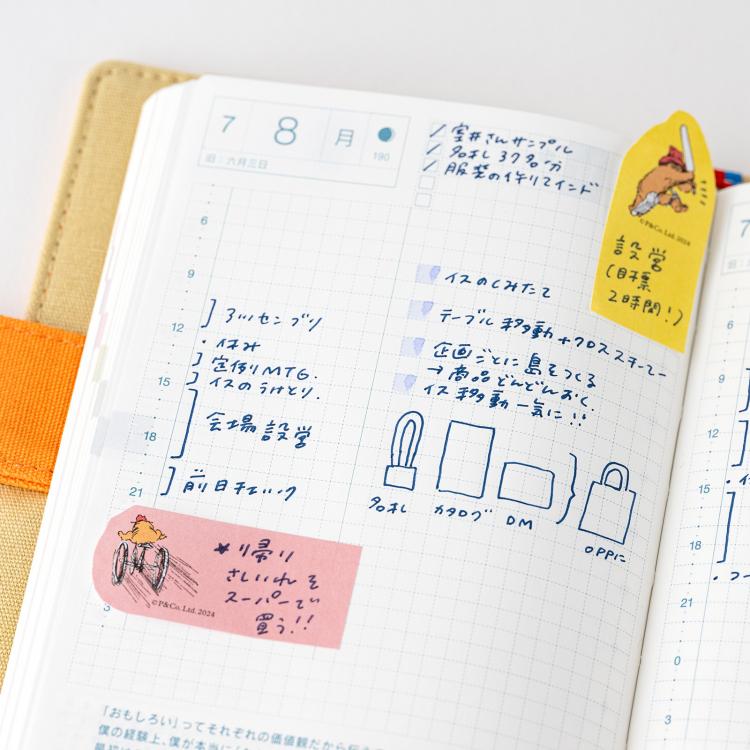 7
8
月
190
旧：六月三日
室井さんサンプル
名札 37名分
服装の件リマインド
設営
(目標
2時間！)
©P&Co. Ltd. 2024
6
9
12
15
18
21
3
ヨリセンブツ
・休み
定例MTG.
イスのうけとり.
会場設営
前日チェック
イスのくみたて
テーブル移動+クロススチーマー
企画ごとに島をつくる
→商品どんどんおく.
イス移動一気に!!
名札
カタログ
DM
OPPに
★帰り
さしいれを
スーパーで
買う!!
©P&Co. Ltd. 2024
「おもしろい」ってそれぞれの価値観だから
僕の経験上、僕が本当に
7
6
9
12
18
21
0
3